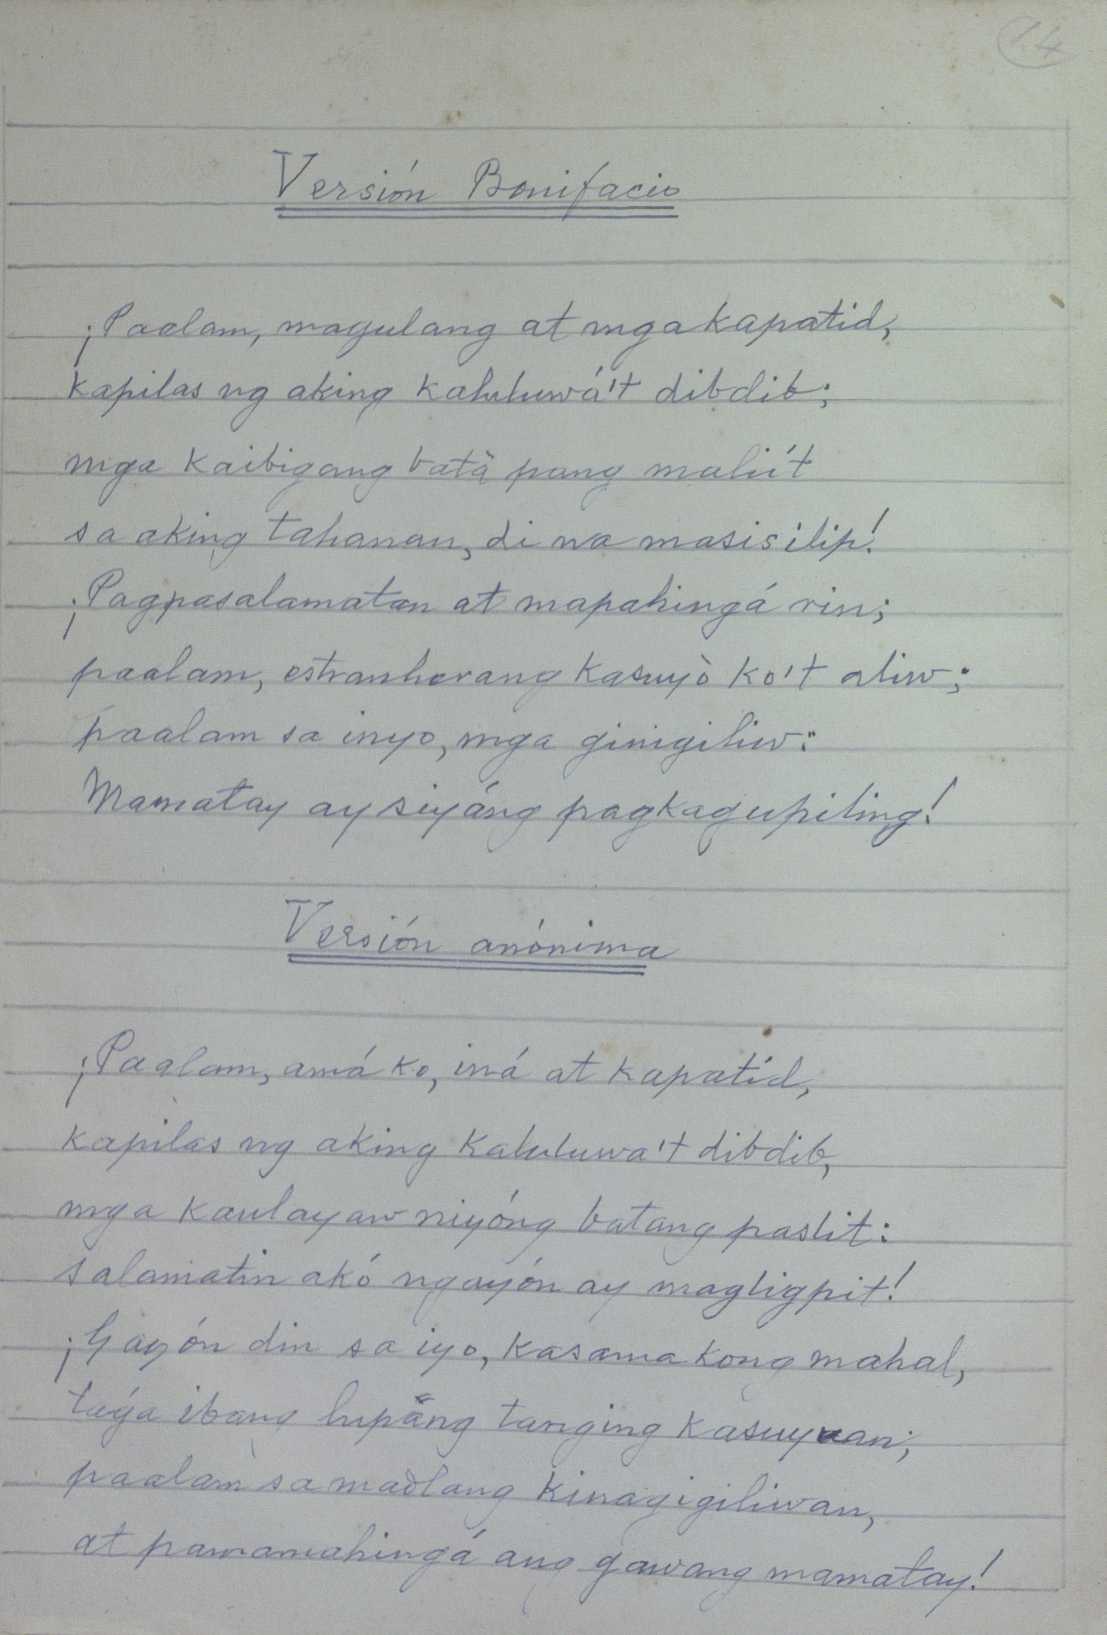 14
Versión Bonifacio
¡Paalam, magulang at mga kapatid,
kapilas ng aking kaluluwá't dibdib;
mga kaibigang batà pang maliít
sa aking tahanan, di na masisilip!
¡Pagpasalamatan at mapahingá rin;
paalam, estranherang kasuyò ko't aliw;
paalam sa inyo, mga ginigiliw:
Mamatay ay siyáng pagkagupiling!
Versión anónima
¡Paalam, amá ko, iná at kapatíd,
kapilas ng aking kaluluwa't dibdib,
mga kaulayaw niyóng batang paslit:
salamatin akó ngayón ay magligpit!
¡Gayón din sa iyo, kasama kong mahal,
tagá ibang lupàng tanging kasuyuan;
paalam sa madlang kinagigiliwan,
at pamamahingá ang gawang mamatay!